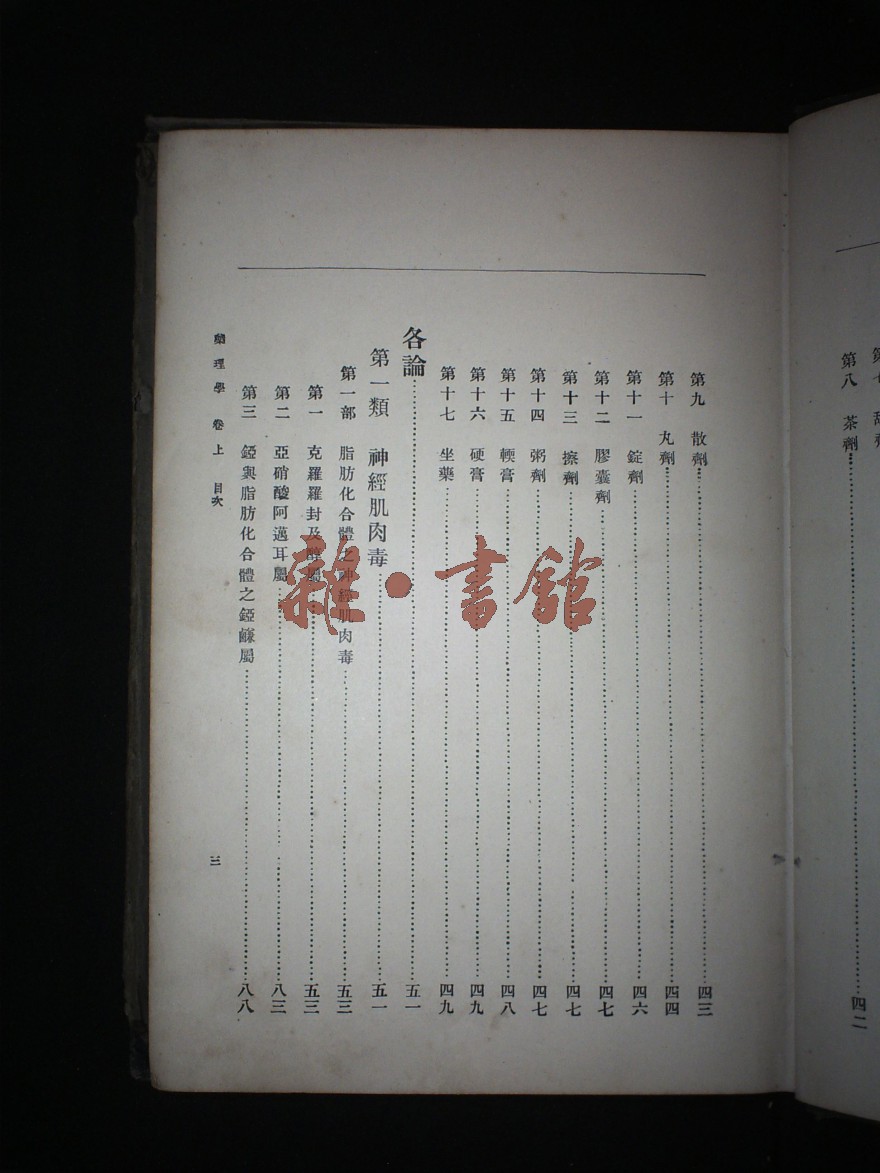 第八 茶劑 四二
第九 散劑 四三
第十 丸劑 四四
第十一 錠劑 四六
第十二 膠囊劑 四七
第十三 擦劑 四七
第十四 粥劑 四七
第十五 輭膏 四八
第十六 硬膏 四九
第十七 坐藥 四九
各論 五一
第一類 神經肌肉毒 五一
第一部 脂肪化合體之神經肌肉毒 五三
第一 克羅羅封及醇屬 五三
第二 亞硝酸阿邁耳屬 八三
第三 錏與脂肪化合體之錏鹻屬 八八
藥理學 卷上 目次 三
雜·書館